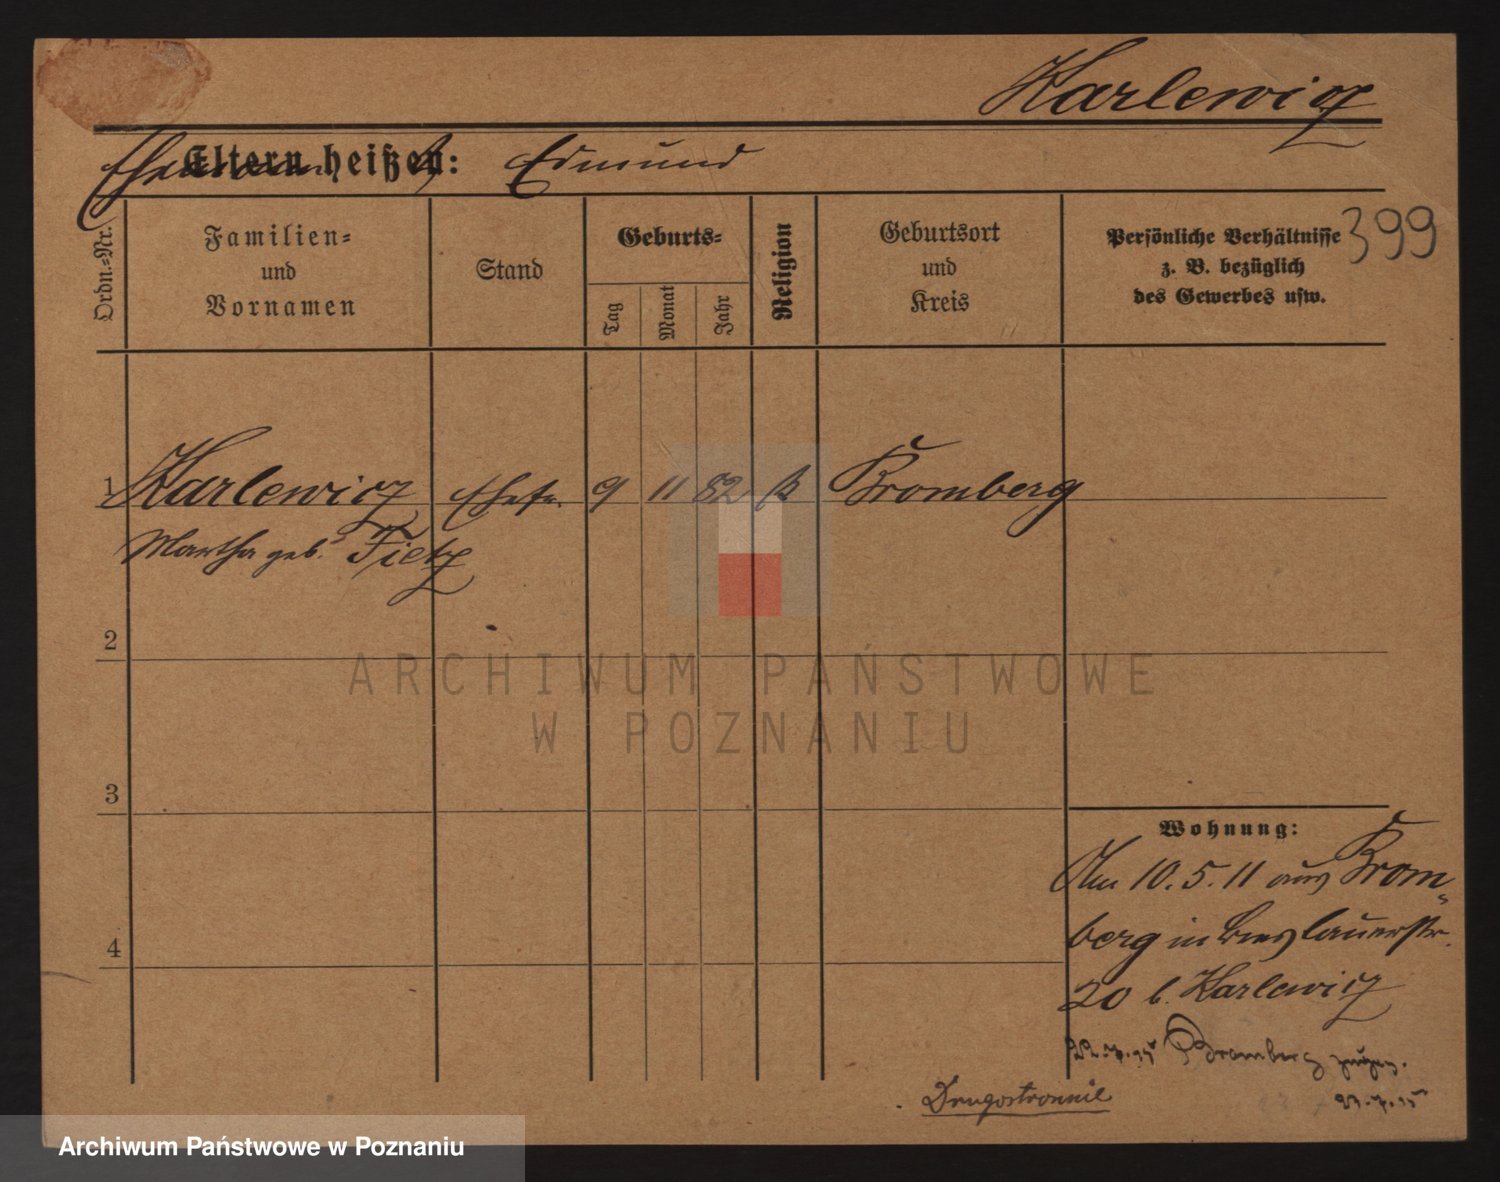 Karlewicz
Eltern heißen: Edmund
Ordn.-Nr.
Familien-
und
Vornamen
Stand
Geburts-
Tag
Monat
Jahr
Religion
Geburtsort
und
Kreis
Persönliche Verhältnisse
z. B. bezüglich
des Gewerbes usw.
399
1 Karlewicz Ehefr. 9 11 82 k Bromberg
Martha geb. Tietz
2
3
4
Wohnung:
Am 10.5.11 aus Brom-
berg in Breslauerstr.
20 b. Karlewicz
22.7.15 Bromberg
23.7.15
Drugostronnie
ARCHIWUM PAŃSTWOWE
W POZNANIU
Archiwum Państwowe w Poznaniu